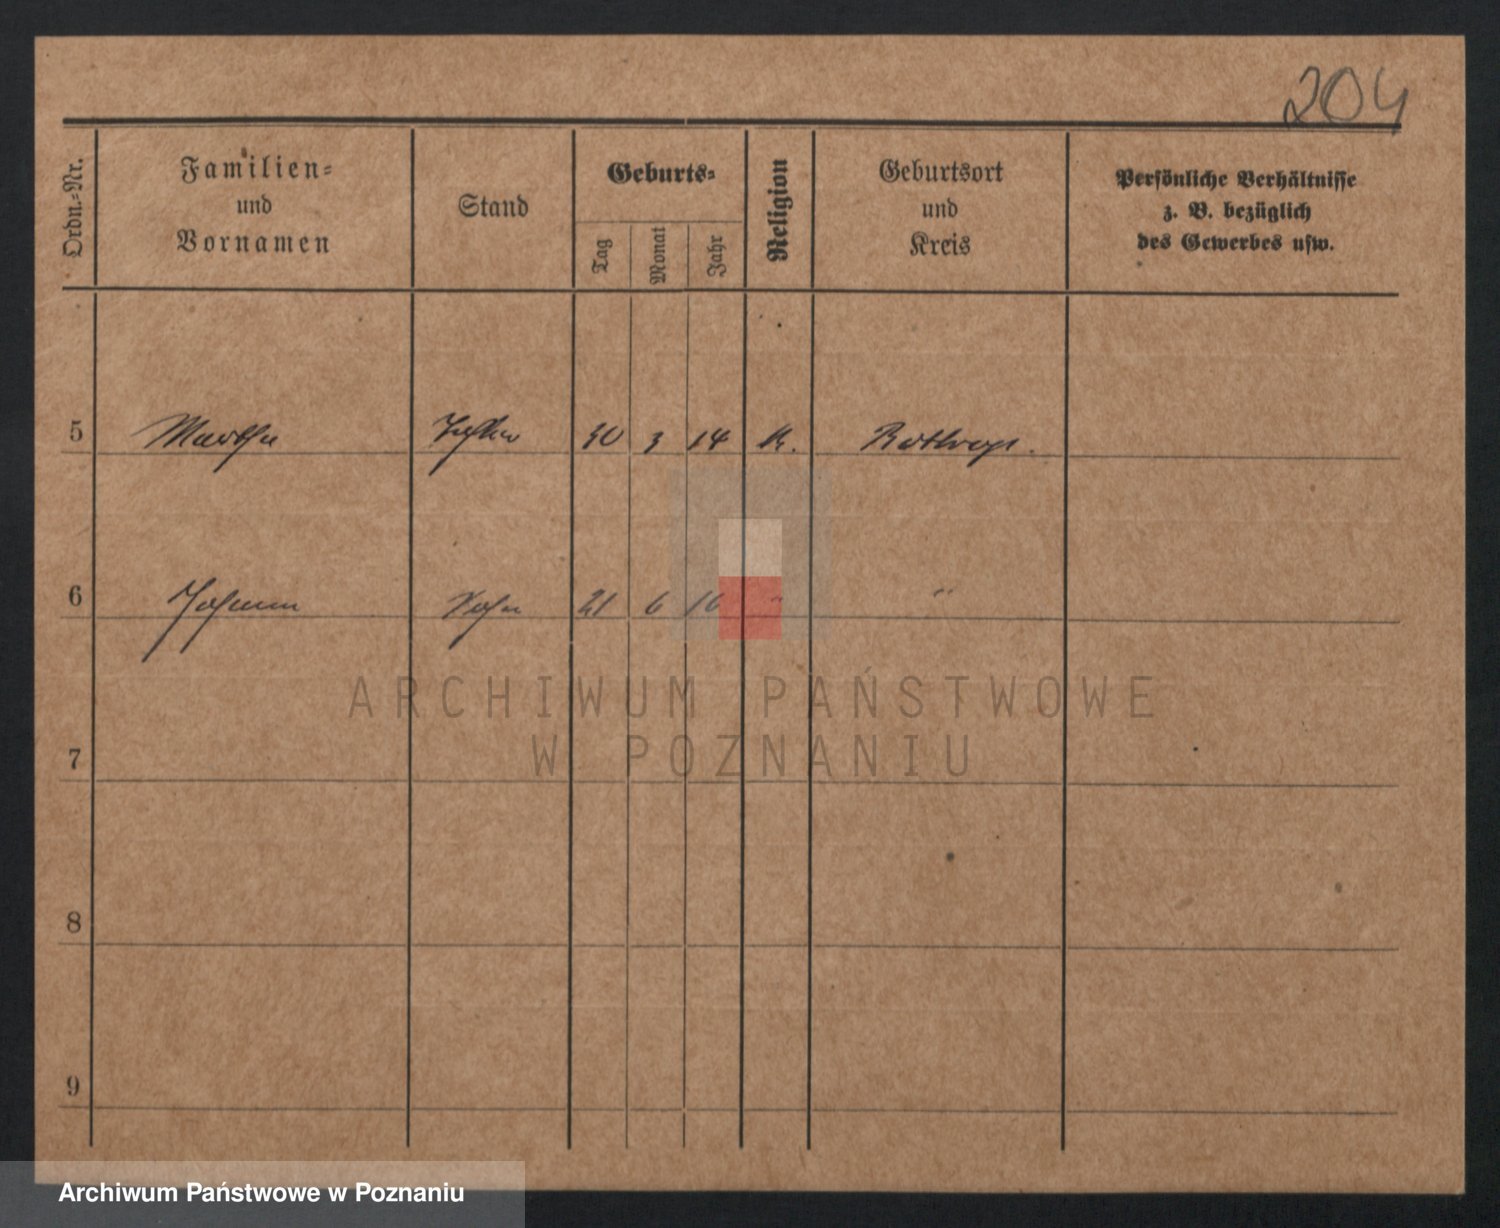 204
Ordn.-Nr.
Familien-
und
Vornamen
Stand
Geburts-
Tag
Monat
Jahr
Religion
Geburtsort
und
Kreis
Persönliche Verhältnisse
z. B. bezüglich
des Gewerbes usw.
5 Martha Tochter 30 3 14 k.
6 Johann Sohn 21 6 16 " "
ARCHIWUM PAŃSTWOWE
W POZNANIU
7
8
9
Archiwum Państwowe w Poznaniu